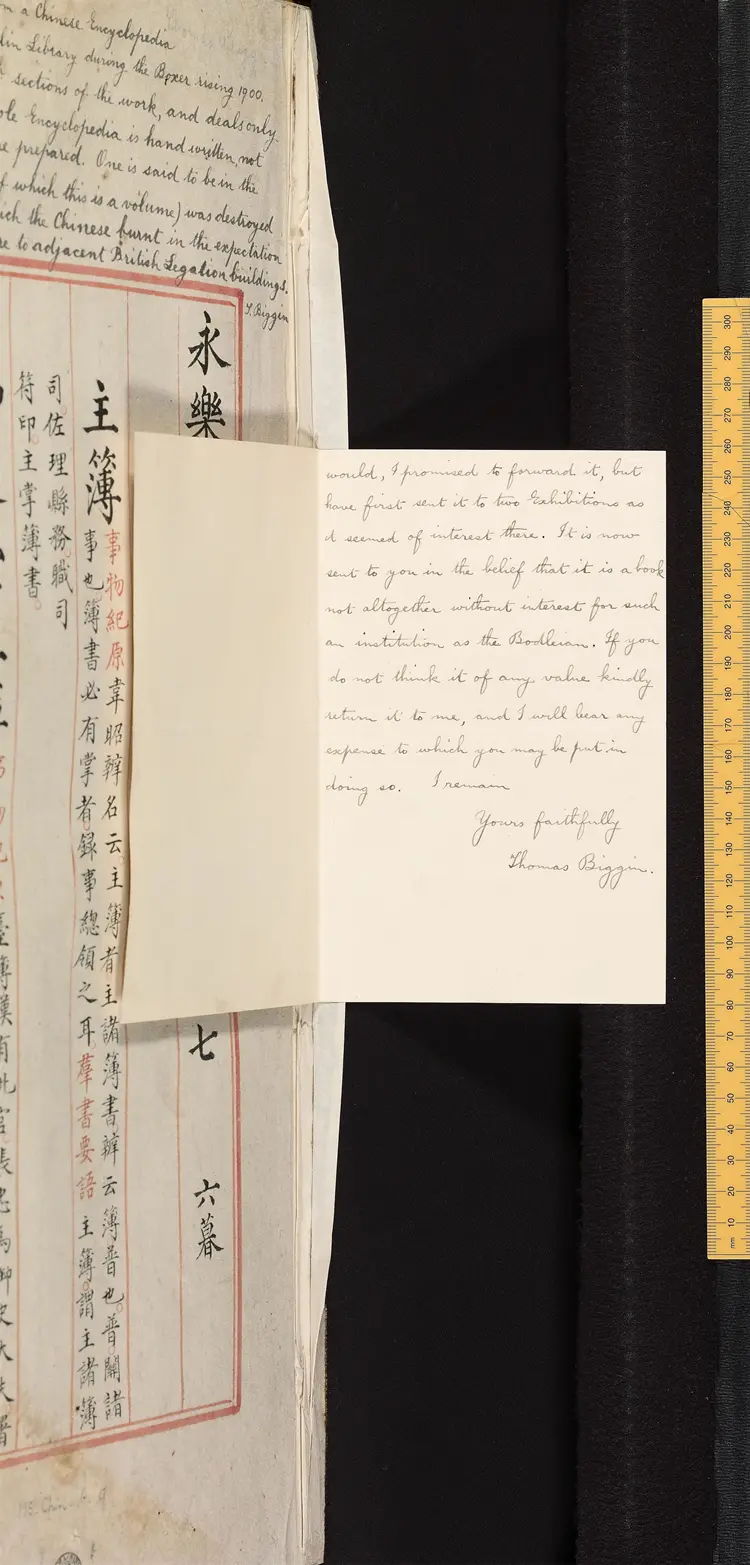 m a Chinese Encyclopedia
lin Library during the Boxer rising 1900.
sections of the work, and deals only
ole Encyclopedia is hand written, not
re prepared. One is said to be in the
f which this is a volume) was destroyed
ich the Chinese burnt in the expectation
re to adjacent British Legation buildings.
T. Biggin
永樂
七
六暮
主簿
事物紀原韋昭辨名云主簿者主諸簿書辨云簿普也普開諸
事也簿書必有掌者録事總領之耳羣書要語主簿謂主諸簿
司佐理縣務職司
符印主掌簿書
would, I promised to forward it, but
have first sent it to two Exhibitions as
it seemed of interest there. It is now
sent to you in the belief that it is a book
not altogether without interest for such
an institution as the Bodleian. If you
do not think it of any value kindly
return it to me, and I will bear any
expense to which you may be put in
doing so. I remain
Yours faithfully
Thomas Biggin.
300
290
280
270
260
250
240
230
220
210
200
190
180
170
160
150
140
130
120
110
100
90
80
70
60
50
40
30
20
10
mm